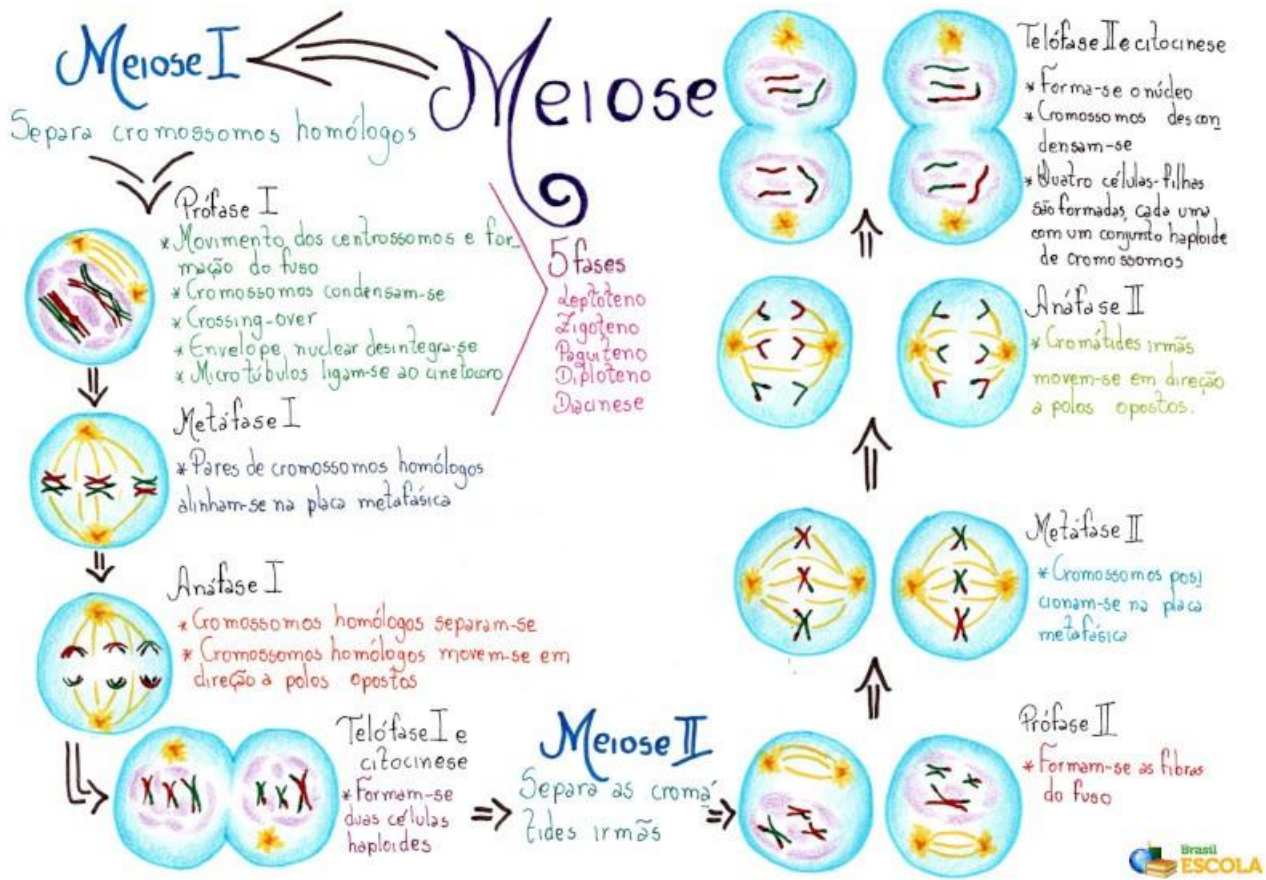 Meiose
Meiose I
Separa cromossomos homólogos
Prófase I
* Movimento dos centrossomos e for_
mação do fuso
* Cromossomos condensam-se
* Crossing-over
* Envelope nuclear desintegra-se
* Microtúbulos ligam-se ao cinetocoro
5 fases
Leptóteno
Zigóteno
Paquíteno
Diplóteno
Diacinese
Metáfase I
* Pares de cromossomos homólogos
alinham-se na placa metafásica
Anáfase I
* Cromossomos homólogos separam-se
* Cromossomos homólogos movem-se em
direção a polos opostos
Telófase I e
citocinese
* Formam-se
duas células
haploides
Meiose II
Separa as cromá
tides irmãs
Prófase II
* Formam-se as fibras
do fuso
Metáfase II
* Cromossomos posi
cionam-se na placa
metafásica
Anáfase II
* Cromátides irmãs
movem-se em direção
a polos opostos.
Telófase II e citocinese
* Forma-se o núcleo
* Cromossomos descon
densam-se
* Quatro células-filhas
são formadas, cada uma
com um conjunto haploide
de cromossomos
Brasil
ESCOLA